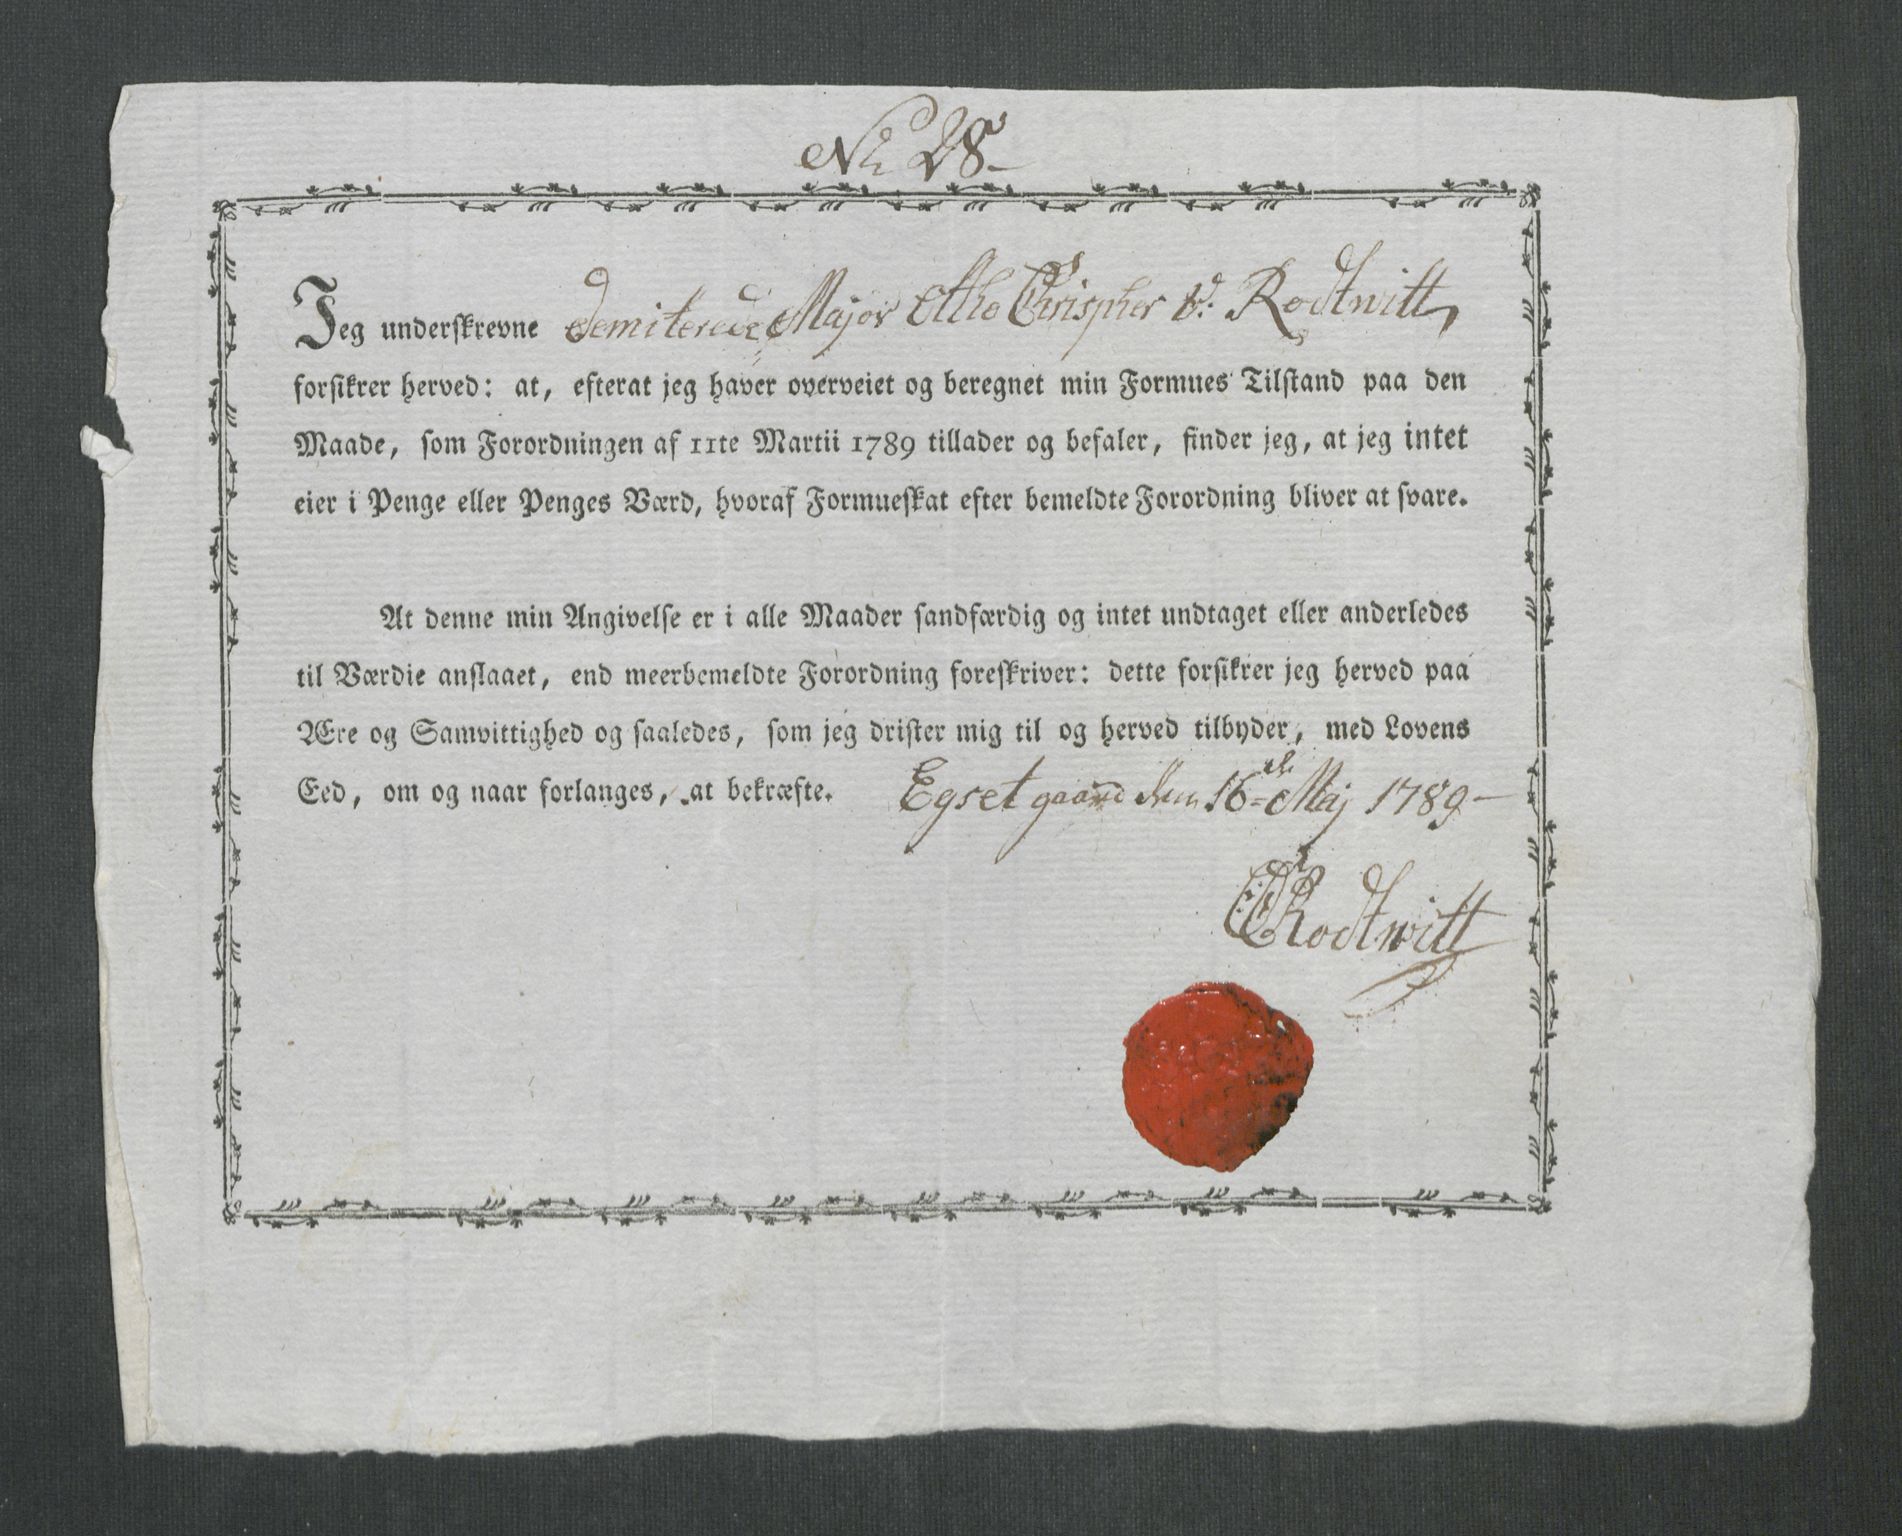 No 28
Jeg underskrevne demiterede Major Otho Chrispher v. Rodtwitt
forsikrer herved: at, efterat jeg haver overveiet og beregnet min Formues Tilstand paa den
Maade, som Forordningen af 11te Martii 1789 tillader og befaler, finder jeg, at jeg intet
eier i Penge eller Penges Værd, hvoraf Formueskat efter bemeldte Forordning bliver at svare.
At denne min Angivelse er i alle Maader sandfærdig og intet undtaget eller anderledes
til Værdie anslaaet, end meerbemeldte Forordning foreskriver: dette forsikrer jeg herved paa
Ære og Samvittighed og saaledes, som jeg drister mig til og herved tilbyder, med Lovens
Eed, om og naar forlanges, at bekræfte. Egset gaard den 16de Maj 1789
Rodtwitt